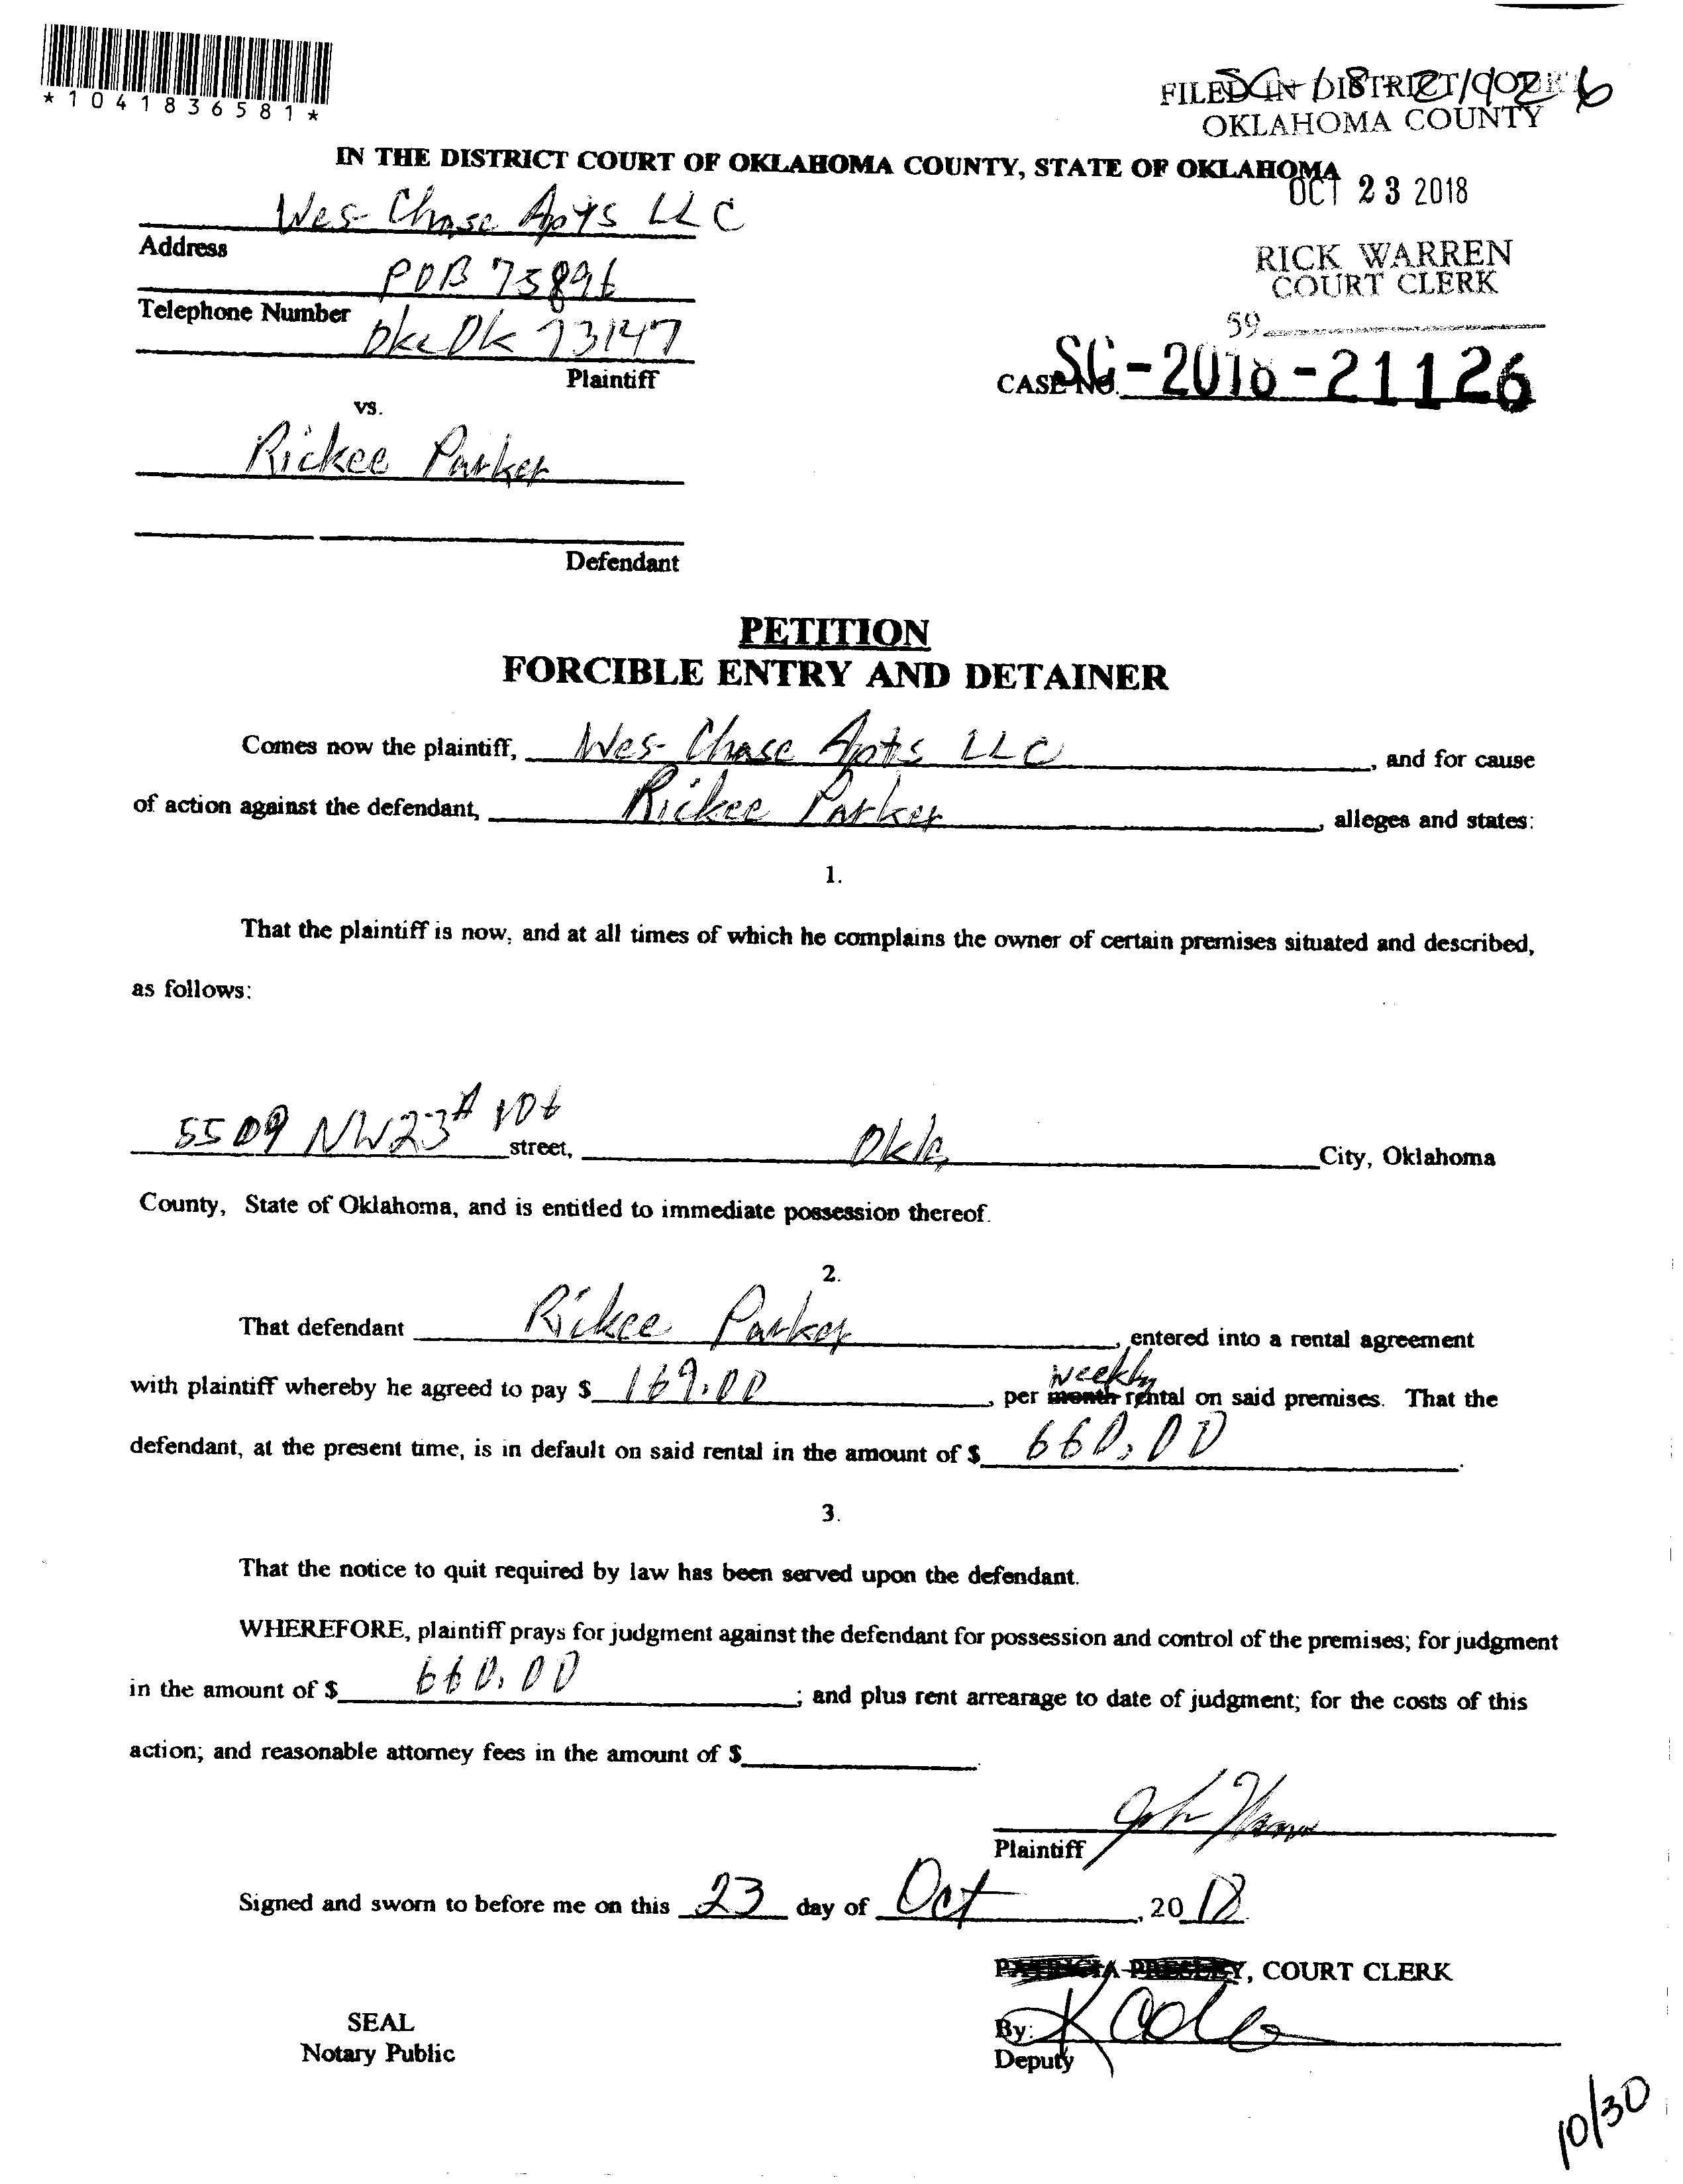 *1041836581*
FILED IN DISTRICT COURT
OKLAHOMA COUNTY
IN THE DISTRICT COURT OF OKLAHOMA COUNTY, STATE OF OKLAHOMA
OCT 23 2018
Wes-Chase Apts LLC
Address
RICK WARREN
COURT CLERK
POB 75896
Telephone Number
59
Okc Ok 73147
CASE NO. SC-2018-21126
Plaintiff
vs.
Rickee Parker
Defendant
PETITION
FORCIBLE ENTRY AND DETAINER
Comes now the plaintiff, Wes-Chase Apts LLC, and for cause
of action against the defendant, Rickee Parker, alleges and states:
1.
That the plaintiff is now, and at all times of which he complains the owner of certain premises situated and described,
as follows:
5509 NW 23 # 106 street, Okla City, Oklahoma
County, State of Oklahoma, and is entitled to immediate possession thereof.
2.
That defendant Rickee Parker, entered into a rental agreement
with plaintiff whereby he agreed to pay $ 169.00, per month weekly rental on said premises. That the
defendant, at the present time, is in default on said rental in the amount of $ 660.00.
3.
That the notice to quit required by law has been served upon the defendant.
WHEREFORE, plaintiff prays for judgment against the defendant for possession and control of the premises; for judgment
in the amount of $ 660.00; and plus rent arrearage to date of judgment; for the costs of this
action; and reasonable attorney fees in the amount of $.
Plaintiff
Signed and sworn to before me on this 23 day of Oct, 2018.
PATRICIA PRESLEY, COURT CLERK
SEAL
By:
Notary Public
Deputy
10/30